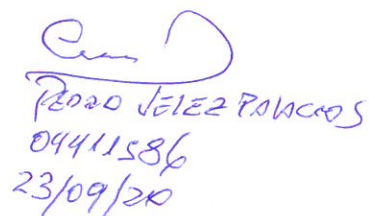 PEDRO VELEZ PALACIOS
04411586
23/09/20